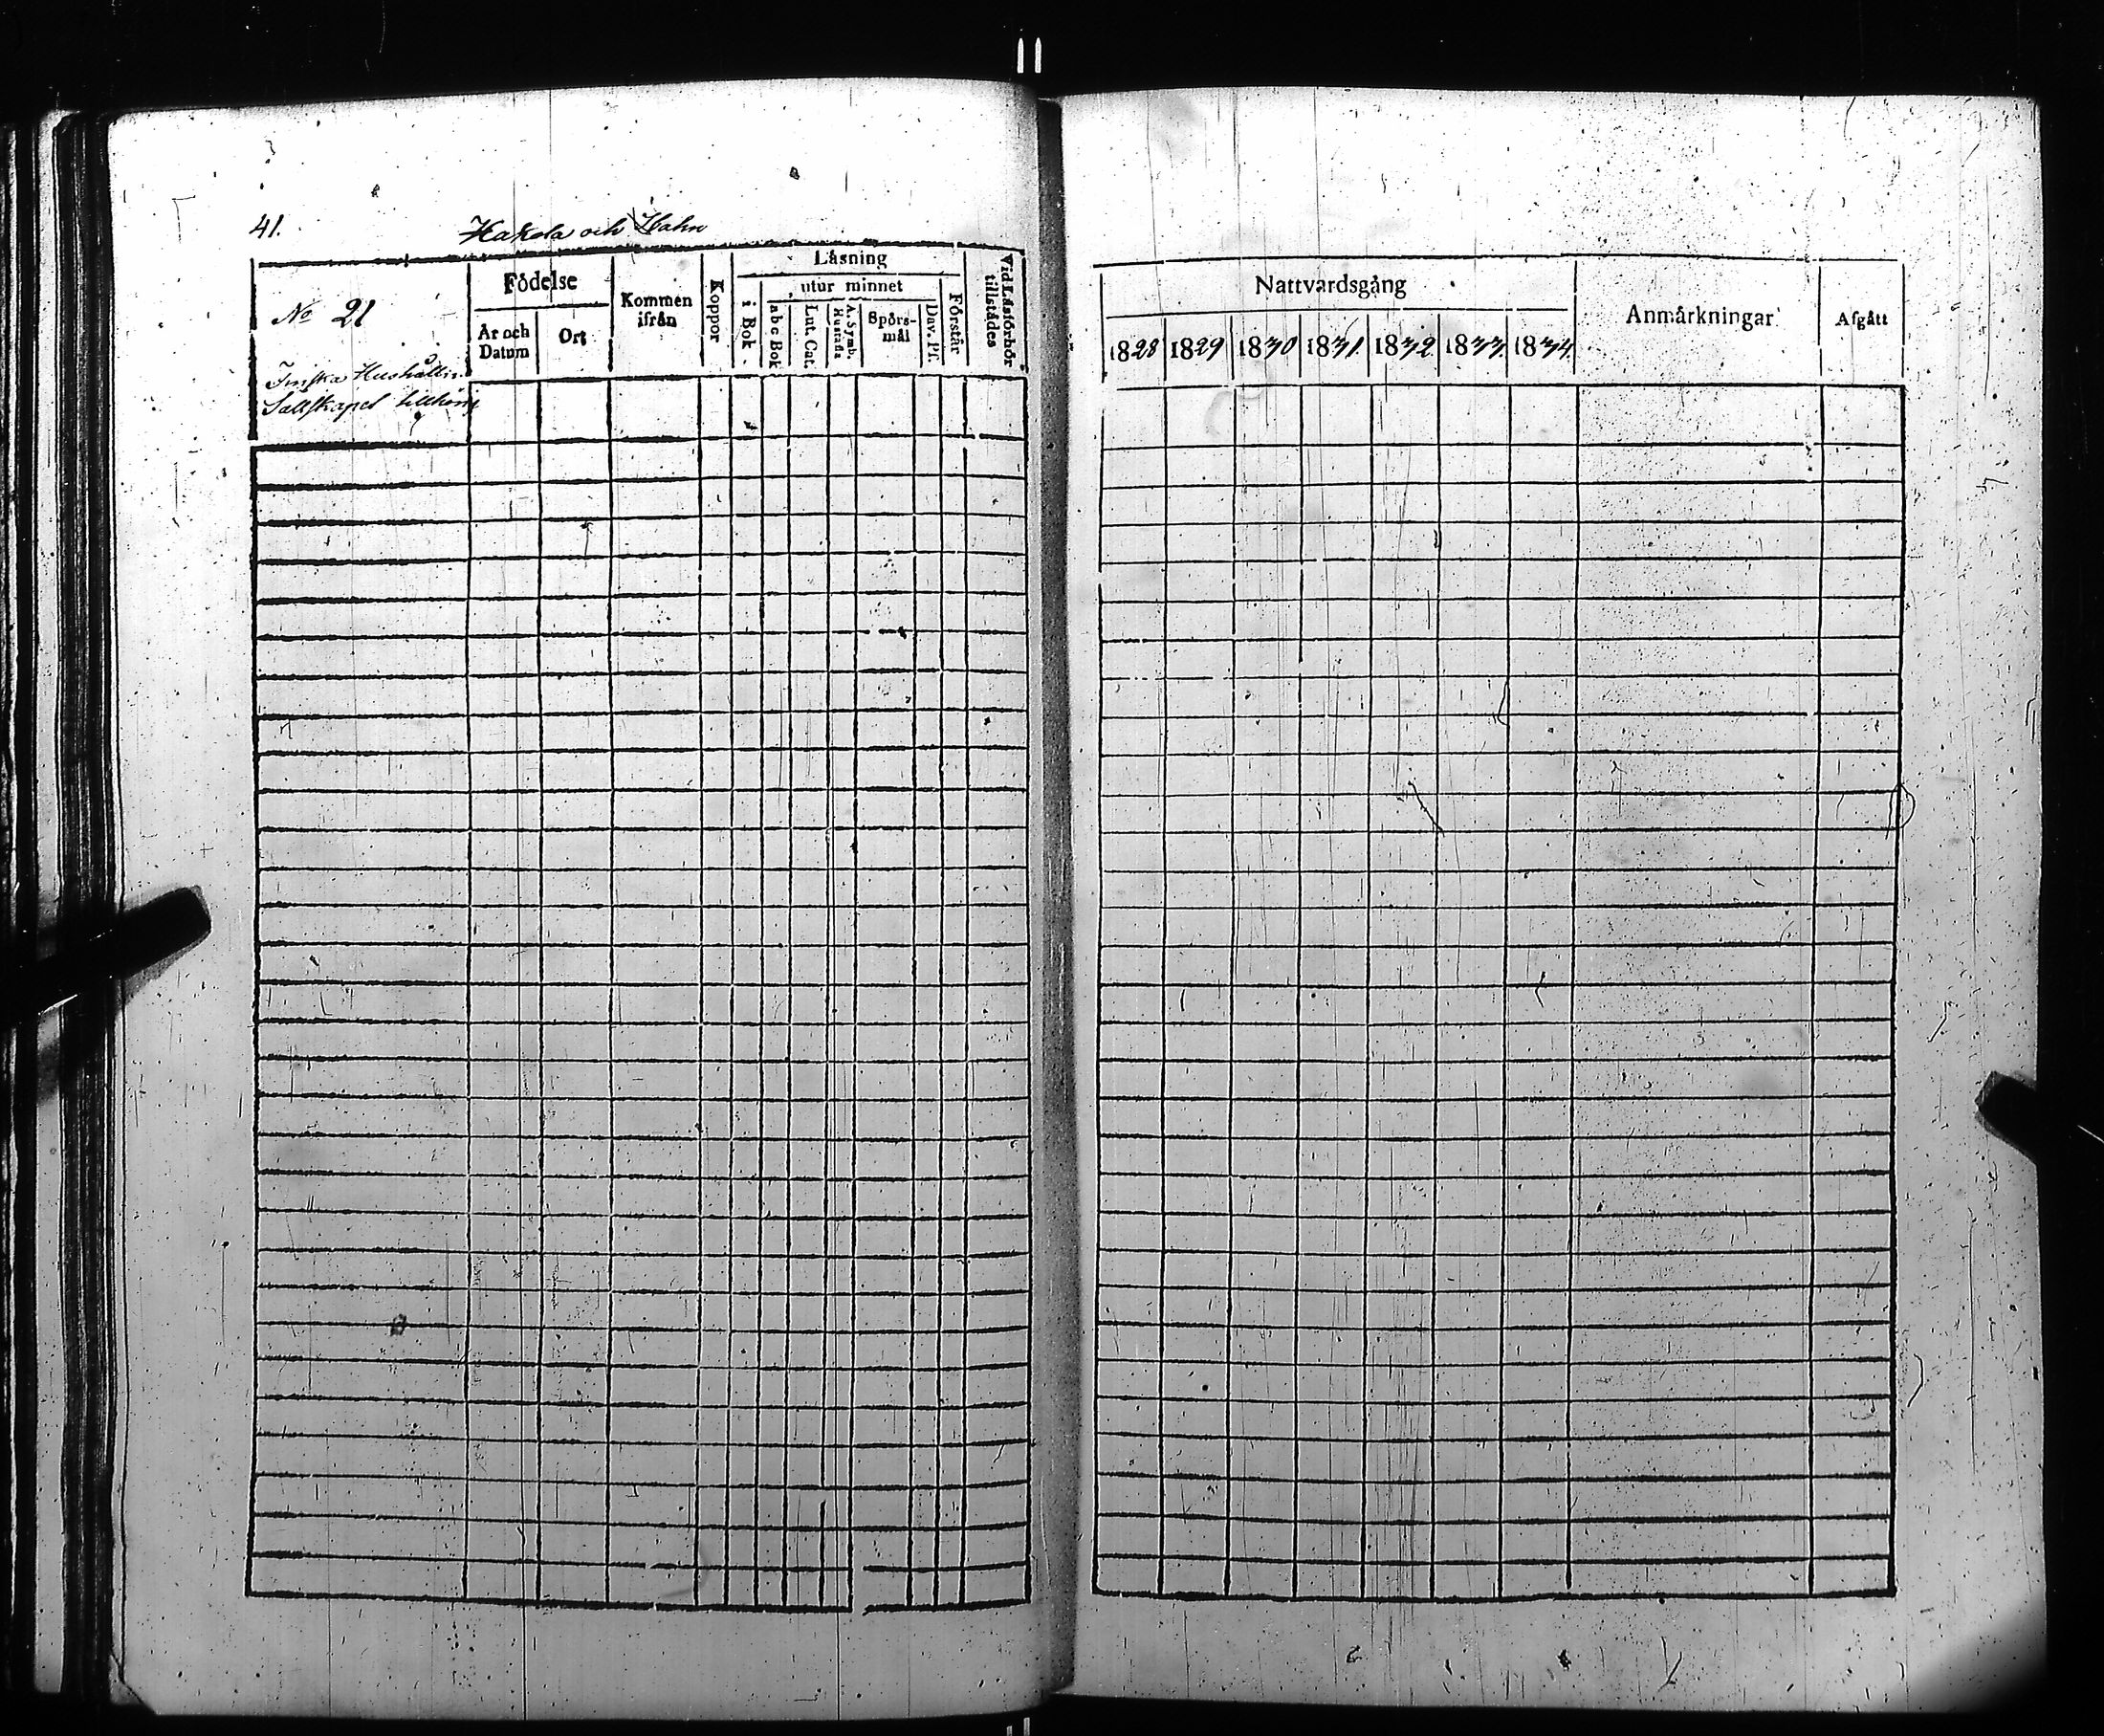 41.
Hakola och Hahn
No 21
Finska Hushålln.
Sällskapet tillhörig
Födelse
År och Datum
Ort
Kommen ifrån
Koppor
Läsning
i Bok
utur minnet
abc Bok
Lut. Cat.
A. Symb. Hustafla
Spörsmål
Dav. Ps.
Förstår
Vid Läsförhör tillstädes
Nattvardsgång
1828 1829 1830 1831. 1832. 1833. 1834.
Anmärkningar
Afgått